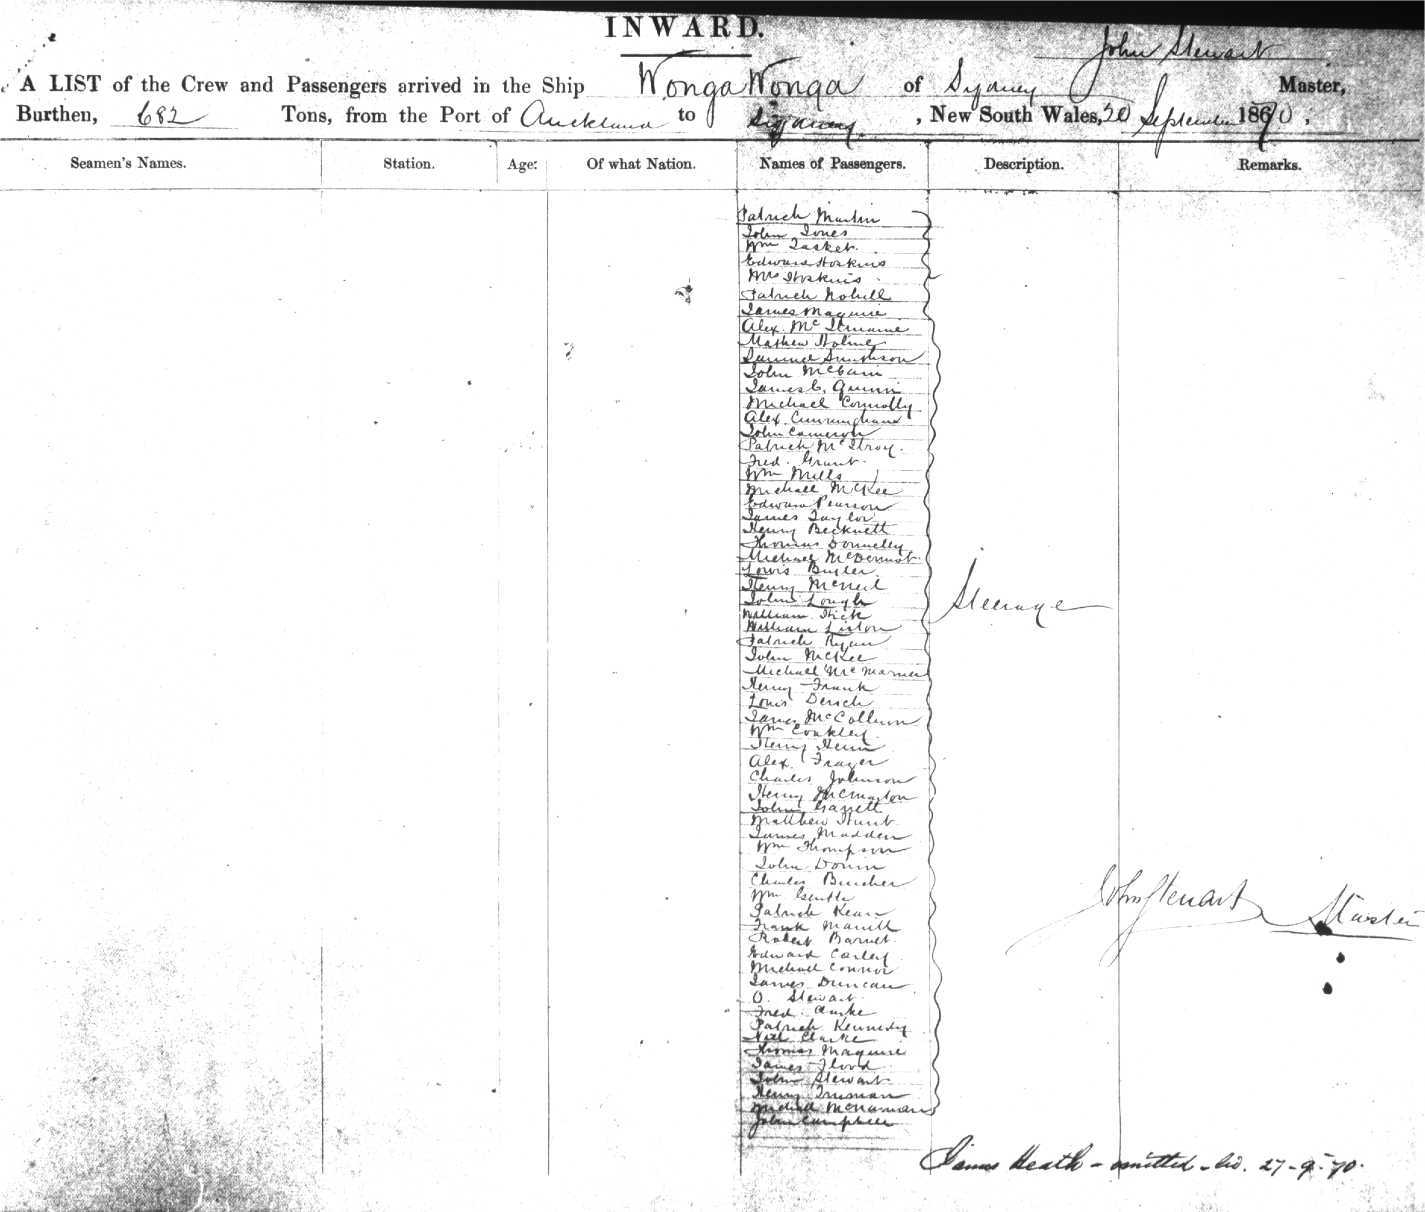 INWARD.
John Stewart
A LIST of the Crew and Passengers arrived in the Ship Wonga Wonga of Sydney Master,
Burthen, 682 Tons, from the Port of Auckland to Sydney, New South Wales, 20 September 1870,
Seamen's Names. Station. Age: Of what Nation. Names of Passengers. Description. Remarks.
Patrick Martin
John Jones
Wm Tasket
Edward Hoskins
Mrs Hoskins
Patrick Nohill
James Maguire
Alex Mc
Mathew Holmes
Samuel
John McCain
James C. Quinn
Michael Connolly
Alex. Cunningham
John Cameron
Patrick McIlroy
Fred. Grant
Wm Mills
Michael McKee
Edward Pearson
James Taylor
Henry Becknett
Thomas Donnelly
Michael McDermot
Louis Butler
Henry McNeil
John Lough
Steerage
William Hick
William Liston
Patrick Ryan
John McKee
Michael McMamee
Henry Frank
Louis Dersch
James McCallum
Wm Coakley
Henry Henn
Alex Frazer
Charles Johnson
Henry McMaston
John Garrett
Matthew Hunt
James Madden
Wm Thompson
John Donin
Charles Burcher
John Stewart Master
Wm
Patrick Kean
Frank Marrith
Robert Barnet
Edward Carley
Michael Connor
James Duncan
O. Stewart
Fred. Clarke
Patrick Kennedy
Neil Clarke
Thomas Maguire
James Flood
John Stewart
Henry Truman
Michael McNamara
John Campbell
James Heath - omitted - 27-9-70.